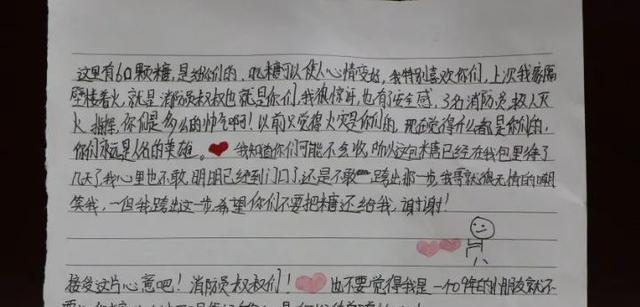 这里有60颗糖,是给你们的,吃糖可以使人心情变好,我特别喜欢你们,上次我家隔
壁楼着火,就是消防员叔叔也就是你们,我很惊讶,也有了安全感,3名消防员,救人灭
火,指挥,你们是多么的帅气啊!以前只觉得火灾是你们的,现在觉得什么都是你们的,
你们永远是人名的英雄。我知道你们可能不会收,所以这包糖已经在我包里待了
几天了,我心里也不敢,明明已经到门口了,还是不敢踏出那一步,我哥就很无情的嘲
笑我,一但我踏出这一步,希望你们不要把糖还给我,谢谢!
接受这片心意吧!消防员叔叔们!也不要觉得我是一个09年的小朋友就不